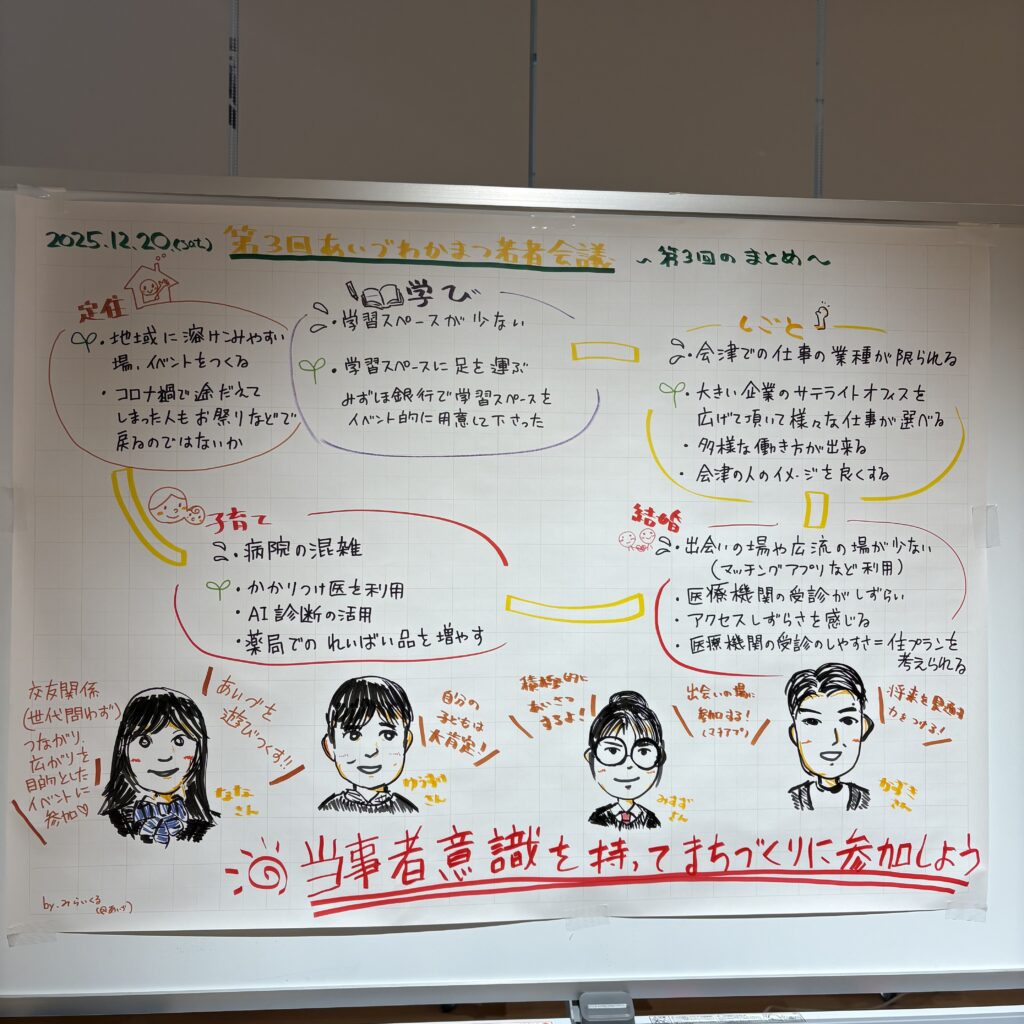 2025.12.20.(Sat.) 第3回あいづわかまつ若者会議 〜第3回のまとめ〜
定住
・地域に溶けこみやすい
場、イベントをつくる
・コロナ禍で途だえて
しまった人もお祭りなどで
戻るのではないか
学び
・学習スペースが少ない
・学習スペースに足を運ぶ
みずほ銀行で学習スペースを
イベント的に用意して下さった
しごと
・会津での仕事の業種が限られる
・大きい企業のサテライトオフィスを
広げて頂いて様々な仕事が選べる
・多様な働き方が出来る
・会津の人のイメージを良くする
子育て
・病院の混雑
・かかりつけ医を利用
・AI診断の活用
・薬局でのれいばい品を増やす
結婚
・出会いの場や広流の場が少ない
(マッチングアプリなど利用)
・医療機関の受診がしずらい
・アクセスしずらさを感じる
・医療機関の受診のしやすさ=住プランを
考えられる
交友関係
(世代問わず)
つながり、
広がりを
目的とした
イベントに
参加♡
ななさん
あいづを
遊びつくす!!
ゆうさん
自分の
子どもは
大肯定!
積極的に
あいさつ
するよ!
みすずさん
出会いの場に
参加する!
(マチアプ)
かずきさん
将来を
力をつける!
当事者意識を持ってまちづくりに参加しよう
by.みらいくる
(@あいづ)